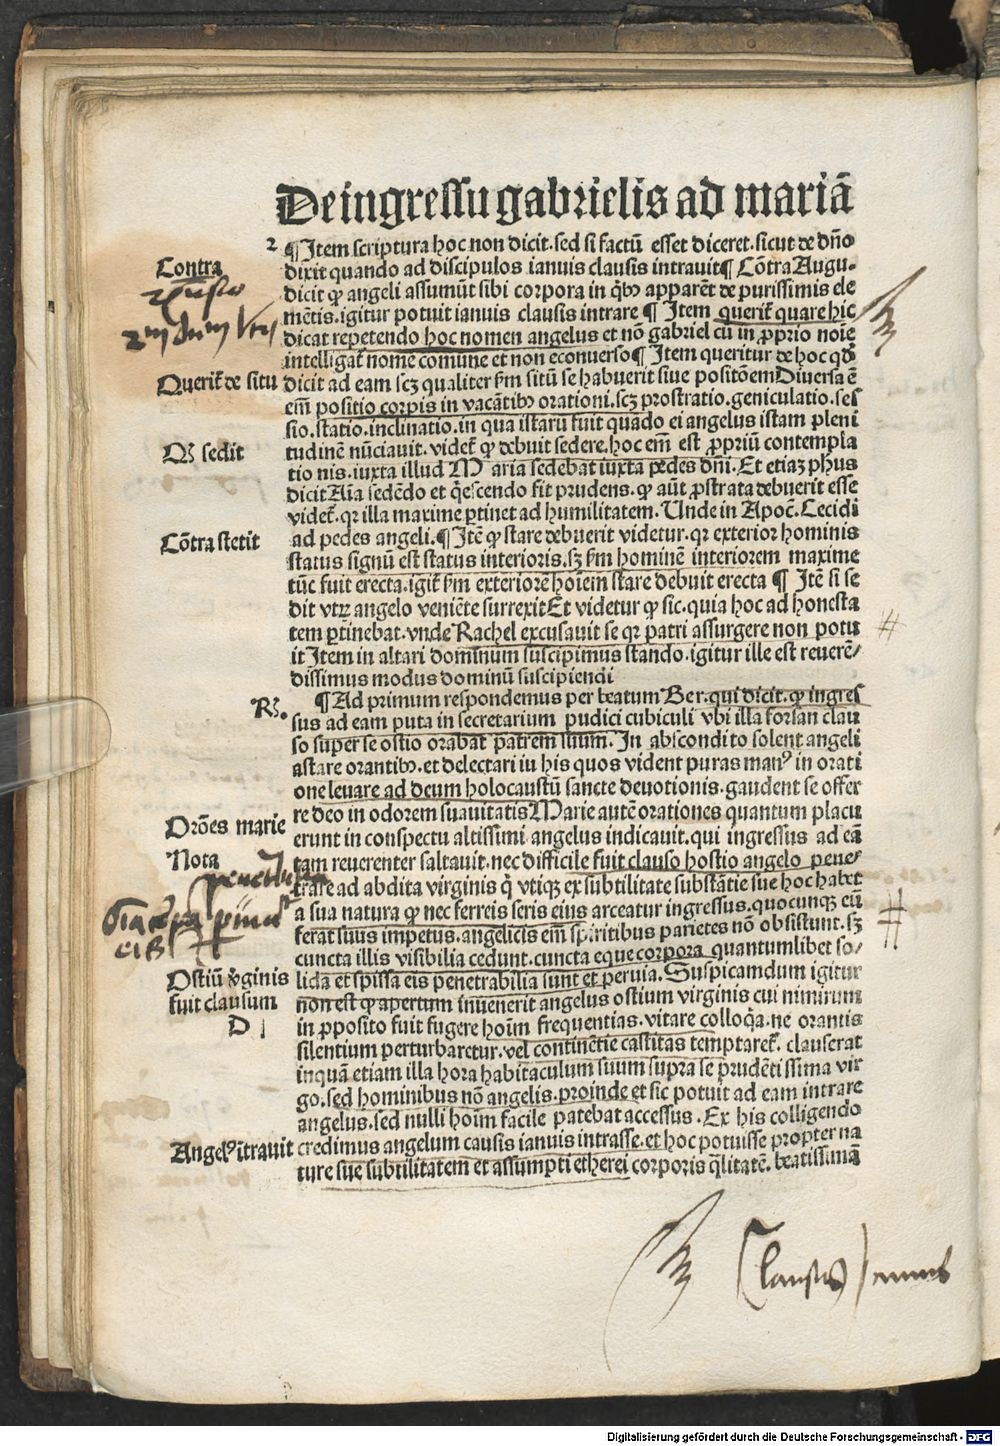 De ingressu gabrielis ad mariā
2 ¶ Item scriptura hoc non dicit. sed si factū esset diceret. sicut de dño
dixit quando ad discipulos ianuis clausis intravit¶ Cōtra Augu-
Contra
dicit qꝙ angeli assumūt sibi corpora in qͥbꝫ apparēt de purissimis ele
mētis. igitur potuit ianuis clausis intrare ¶ Item querit̃ quare hic
dicat repetendo hoc nomen angelus et nō gabriel cū in ꝓprio noīe
intelligat̃ nomē comune et non econuerso¶ Item queritur de hoc qđ
Querit̃ de situ
dicit ad eam scꝫ qualiter ẜm sitū se habuerit siue positōem Diuersa ē
em̄ positio corpis in vacātibꝫ orationi. scꝫ prostratio. geniculatio. ses
sio. statio. inclinatio. in qua istarū fuit quādo ei angelus istam pleni
Qꝫ sedit
tudinē nūciauit. videt̃ ꝙ debuit sedere. hoc em̄ est ꝓpriū contempla
tio nis. iuxta illud Maria sedebat iuxta pedes dn̄i. Et etiaꝫ phus
dicit Aīa sedēdo et q̄escendo fit prudens. ꝙ aūt ꝓstrata debuerit esse
videt̃. qꝛ illa maxime ꝑtinet ad humilitatem. Unde in Apoc̄. Cecidi
Cōtra stetit
ad pedes angeli. ¶ Itē ꝙ stare debuerit videtur. qꝛ exterior hominis
status signū est status interioris. sꝫ ẜm hominē interiorem maxime
tūc fuit erecta. igit̃ ẜm exteriorē hoīem stare debuit erecta ¶ Itē si se
dit vtꝝ angelo veniēte surrexit Et videtur ꝙ sic. quia hoc ad honesta
tem ꝑtinebat. vnde Rachel excusauit se qꝛ patri assurgere non potu
it Item in altari dominum suscipimus stando. igitur ille est reuerē/
dissimus modus dominū suscipiendi
Rꝫ.
¶ Ad primum respondemus per beatum Ber. qui dicit. ꝙ ingres
sus ad eam puta in secretarium pudici cubiculi vbi illa forsan clau
so super se ostio orabat patrem suum. In abscondito solent angeli
astare orantibꝫ. et delectari iu his quos vident puras manꝰ in orati
one leuare ad deum holocaustū sancte deuotionis. gaudent se offer
Orōes marie
re deo in odorem suauitatis Marie autē orationes quantum placu
erunt in conspectu altissimi angelus indicauit. qui ingressus ad eā
Nota
tam reuerenter saltauit. nec difficile fuit clauso hostio angelo pene-
trare ad abdita virginis q̄ vtiqꝫ ex subtilitate substātie sue hoc habet
a sua natura ꝙ nec ferreis seris eius arceatur ingressus. quocunqꝫ eū
ferat suus impetus. angelicis em̄ spiritibus parietes nō obsistunt. sꝫ
cuncta illis visibilia cedunt. cuncta eque corpora quantumlibet so/
Ostiū v̓ginis
lida et spissa eis penetrabilia sunt et peruia. Suspicamdum igitur
fuit clausum
non est ꝙ apertum inuenerit angelus ostium virginis cui nimirum
D
in ꝓposito fuit fugere hoīm frequentias. vitare colloq̄a. ne orantis
silentium perturbaretur. vel continētie castitas temptaret̃. clauserat
inquā etiam illa hora habitaculum suum supra se prudēti ssima vir
go. sed hominibus nō angelis. proinde et sic potuit ad eam intrare
angelus. sed nulli hoīm facile patebat accessus. Ex his colligendo
Angelꝰ ītrauit
credimus angelum causis ianuis intrasse. et hoc potuisse propter na
ture sue subtilitatem et assumpti etherei corporis q̄litatē. beatissimā
Clausus
Digitalisierung gefördert durch die Deutsche Forschungsgemeinschaft - DFG